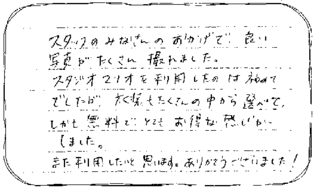 スタッフのみなさんのおかげで 良い
写真がたくさん 撮れました。
スタジオマリオを利用したのは 初めて
でしたが 衣装もたくさんの中から 選べて、
しかも 無料で とても お得な 感じが
しました。
また利用したいと 思います。ありがとうございました!